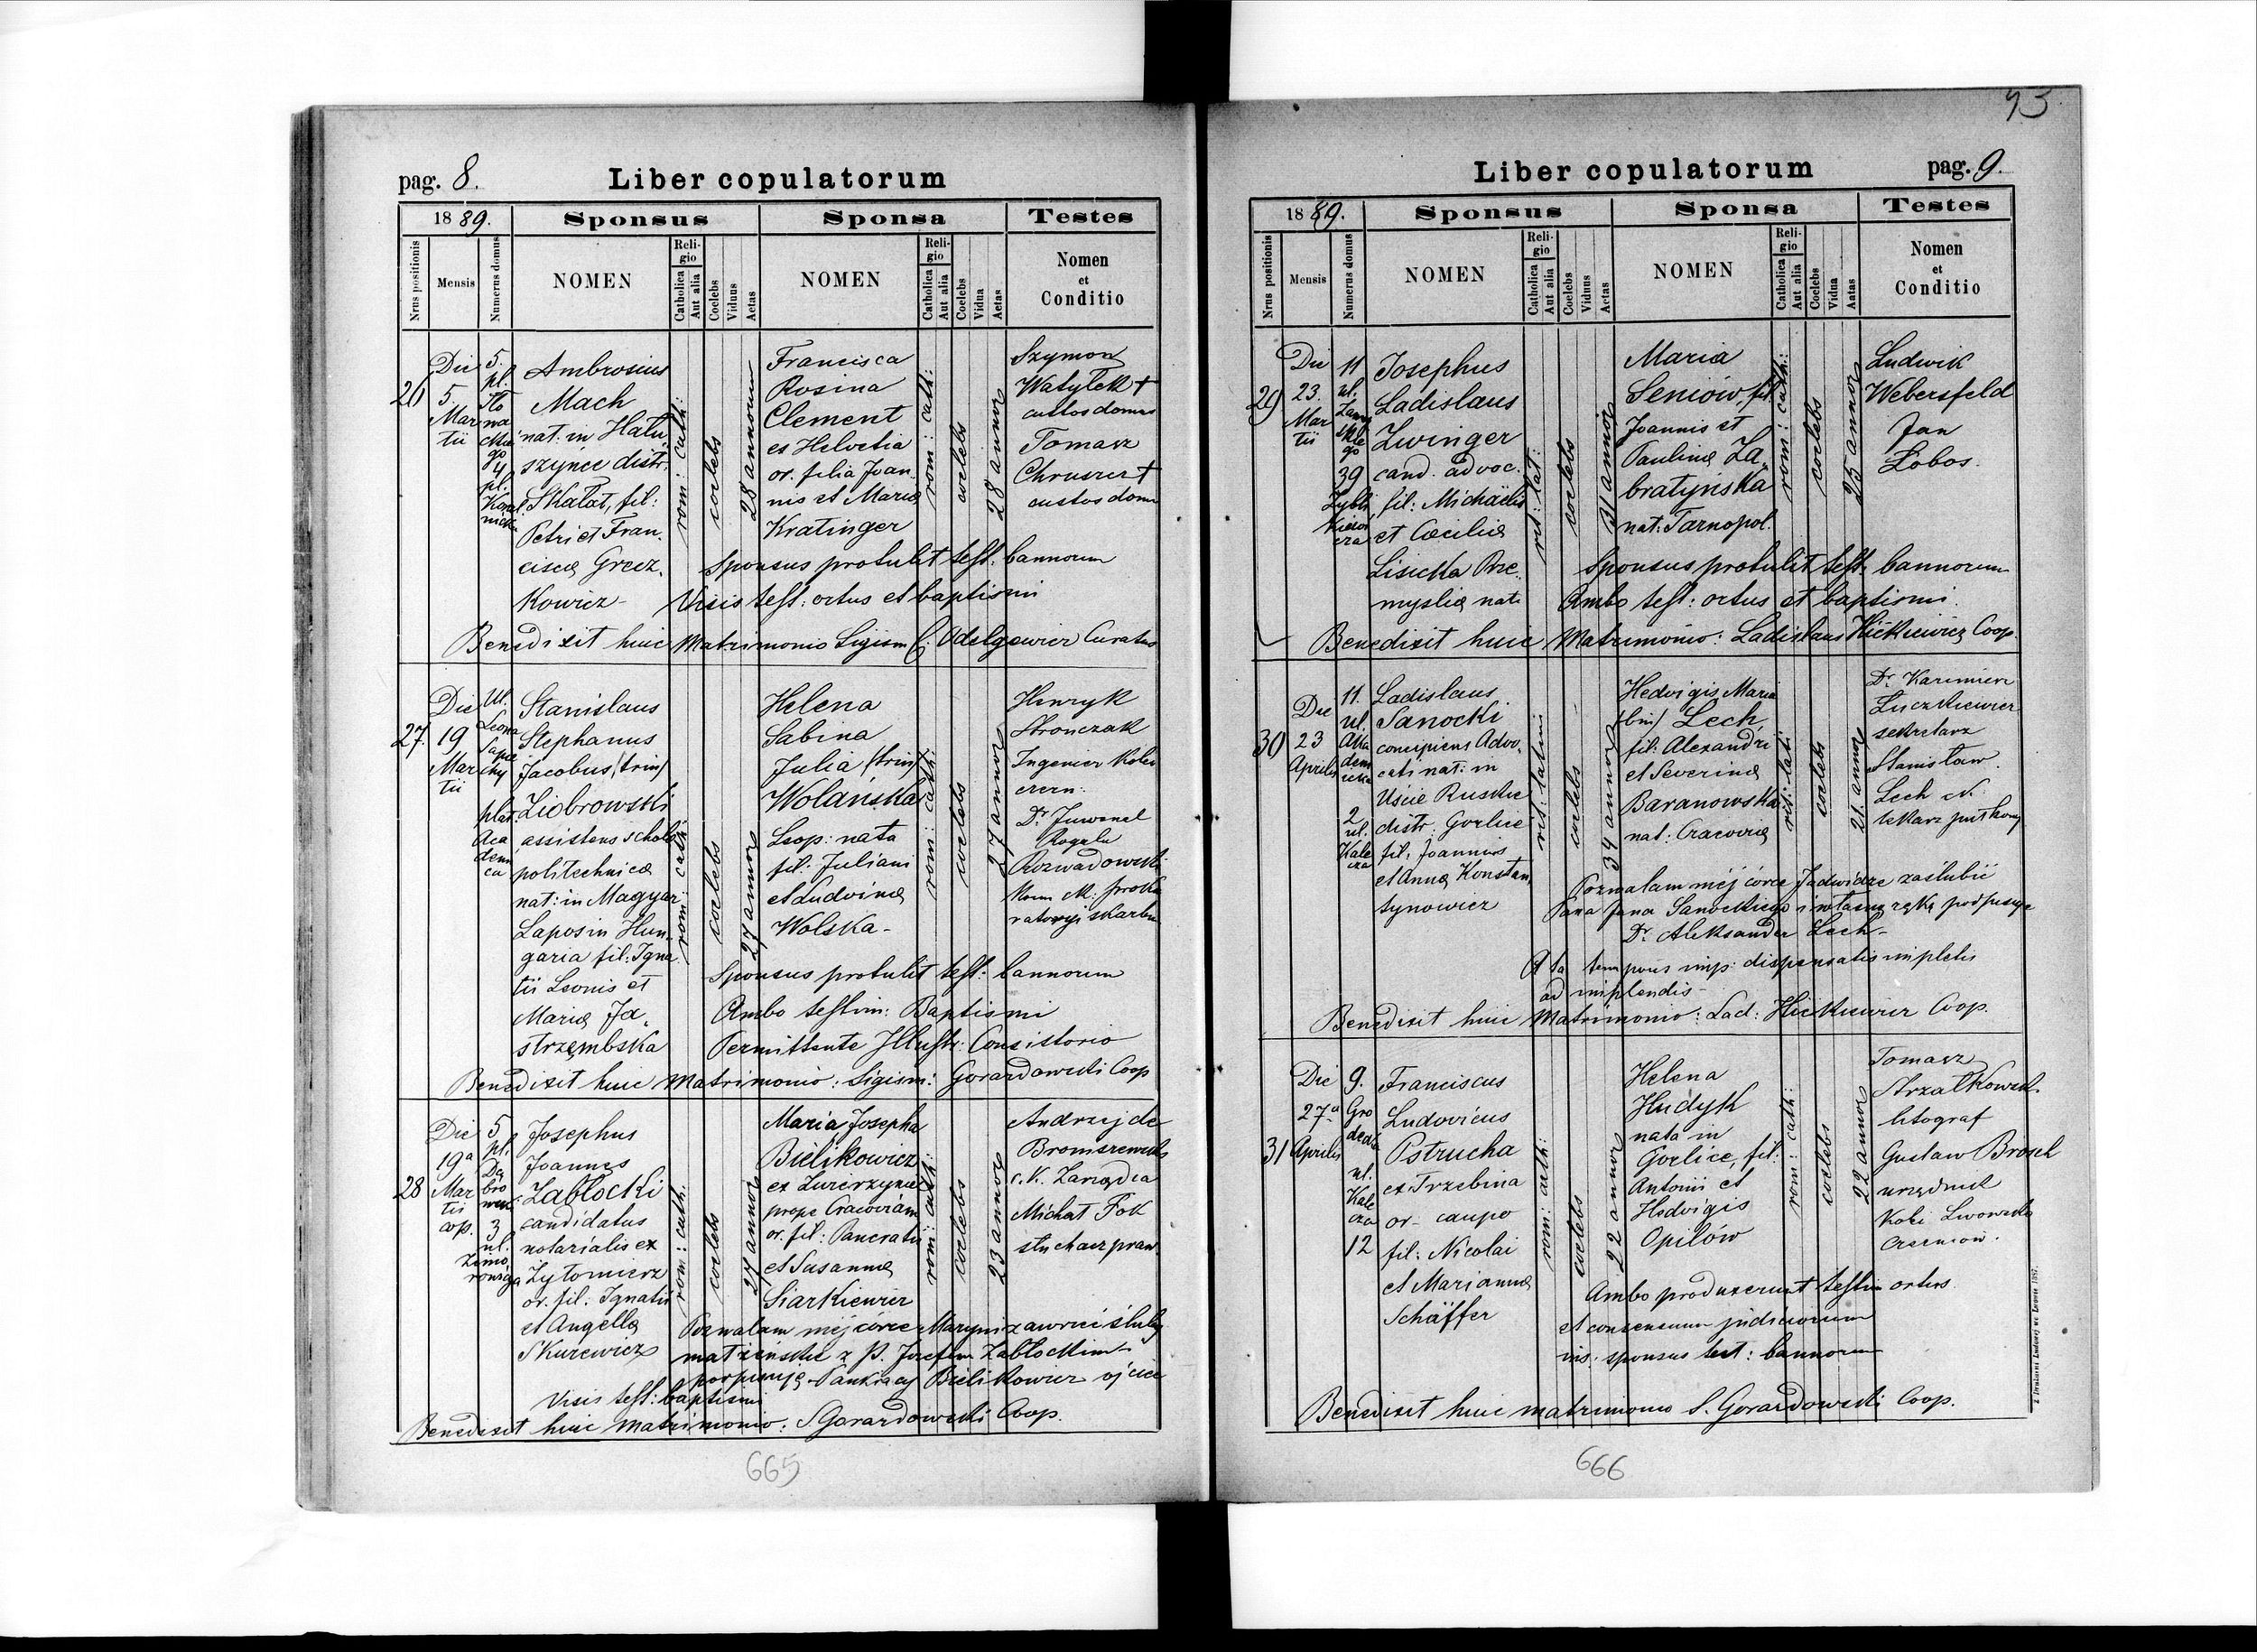 pag. 8.
Liber copulatorum
1889.
Sponsus
Sponsa
Testes
Nrus positionis
Mensis
Numerus domus
NOMEN
Religio
Catholica
Aut alia
Coelebs
Viduus
Aetas
NOMEN
Religio
Catholica
Aut alia
Coelebs
Vidua
Aetas
Nomen
et
Conditio
26
Die
5.
Mar
tii
5.
pl.
4
pl.
Ambrosius
Mach
nat: in Hału,
szyńce distr.
Skałat, fil:
Petri et Fran,
ciscæ Grecz,
kowicz
rom: cath:
coelebs
28 annorum
Francisca
Rosina
Clement
ex Helvetia
or. filia Joan
nis et Mariæ
Kratinger
rom: cath:
coelebs
28 annor
Szymon
Watylek +
custos domus
Tomasz
Chruszcz +
custos domu
Sponsus protulit test: bannorum
Visis test: ortus et baptismi
Benedixit huic Matrimonio Sigism Odelgiewicz Curatus
27.
Die
19
Mar
tii
Ul.
Leona
Sapie
hy
plac.
Aca
dem
ca
Stanislaus
Stephanus
Jacobus (trin)
Ziobrowski
assistens scholæ
politechnicæ
nat: in Magyar
Lapos in Hun,
garia fil: Igna
tii Leonis et
Mariæ Ja,
strzęmbska
rom: cath:
coelebs
27 annor
Helena
Sabina
Julia (trin)
Wolańska
Leop: nata
fil: Juliani
et Ludvinæ
Wolska
rom: cath:
coelebs
27 annor
Henryk
Stronczak
Ingenier Kolei
czern:
Dr. Juwenal
Rogala
Rozwadowski
skarbu
Sponsus protulit test: bannorum
Ambo testim: Baptismi
Permittente Illustr: Consistorio
Benedixit huic Matrimonio: Sigism: Gorazdowski Coop
28
Die
19a
Mar
tii
cop.
5
pl.
Dą
bro
wsk.
3
ul.
Zimo
rowicza
Josephus
Joannes
Zabłocki
candidatus
notarialis ex
Żytomierz
or. fil: Ignatii
et Angellæ
Skurewicz
rom: cath:
coelebs
27 annor
Maria Josepha
Bielikowicz
ex Zwierzyniec
prope Cracoviam
or. fil: Pancratii
et Susannæ
Siarkiewicz
rom: cath:
coelebs
23 annor
Andrzej de
Broniszewski
c.k. Zarządca
Michał Fok
słuchacz praw
Pozwalam mej córce Maryni zawrzeć śluby
małżeńskie z P. Józefem Zabłockim
Pankracy Bielikowicz ojciec
Visis test: baptismi
Benedixit huic Matrimonio: S Gorazdowski Coop.
665
93
Liber copulatorum
pag. 9.
1889.
Sponsus
Sponsa
Testes
Nrus positionis
Mensis
Numerus domus
NOMEN
Religio
Catholica
Aut alia
Coelebs
Viduus
Aetas
NOMEN
Religio
Catholica
Aut alia
Coelebs
Vidua
Aatas
Nomen
et
Conditio
29
Die
23.
Mar
tii
11
ul.
39
Josephus
Ladislaus
Zwinger
cand. advoc.
fil: Michaelis
et Cæciliæ
Lisicka Prze,
mysliæ nat:
rit: lat:
coelebs
31 annor
Maria
Seniów, fil:
Joannis et
Paulinæ Za,
bratyńska
nat: Tarnopol.
rom: cath:
coelebs
25 annor
Ludwik
Webersfeld
Jan
Łobos.
Sponsus protulit test: bannorum
Ambo test: ortus et baptismi.
Benedixit huic Matrimonio: Ladislaus Hićkiewicz Coop.
30
Die
23
Aprilis
11.
ul.
Aka
dem
icka
2
ul.
Kale
cza
Ladislaus
Sanocki
concipiens Advo,
cati nat: in
Uście Ruskie
distr: Gorlice
fil: Joannis
et Annæ Konstan,
tynowicz
rit: latini
coelebs
34 annor
Hedvigis Maria
(bin) Lech,
fil: Alexandri
et Severinæ
Baranowska
nat: Cracoviæ
rit: lati
coelebs
21. annor
Dr. Kazimierz
Łuczkiewicz
sekretarz
Stanisław
Lech
lekarz pułkowy
Pozwalam mej córce Jadwidze zaślubić
Pana Jana Sanockiego i własną ręką podpisuję
Dr. Aleksander Lech
A ta temporis imp: dispensatis impletis
ad implendis
Benedixit huic Matrimonio: Lad: Hićkiewicz Coop.
31
Die
27a
Aprilis
9.
Gro
decka
ul.
Kale
cza
12
Franciscus
Ludovicus
Pstrucha
ex Trzebina
or- caupo
fil: Nicolai
et Mariannæ
Schäffer
rom: cath:
coelebs
22 annor
Helena
Hudyk
nata in
Gorlice, fil:
Antonii et
Hedvigis
Opilów
rom: cath:
coelebs
22 annor
Tomasz
Strzałkowski
litograf
Gustaw Brosch
urzędnik
Kolei Lwowsko
Czerniow.
Ambo produxerunt testim ortus.
et consensum judiciorum
sponsus test: bannorum
Benedixit huic matrimonio S. Gorazdowski Coop.
Z Drukarni Ludowej we Lwowie 1887.
666